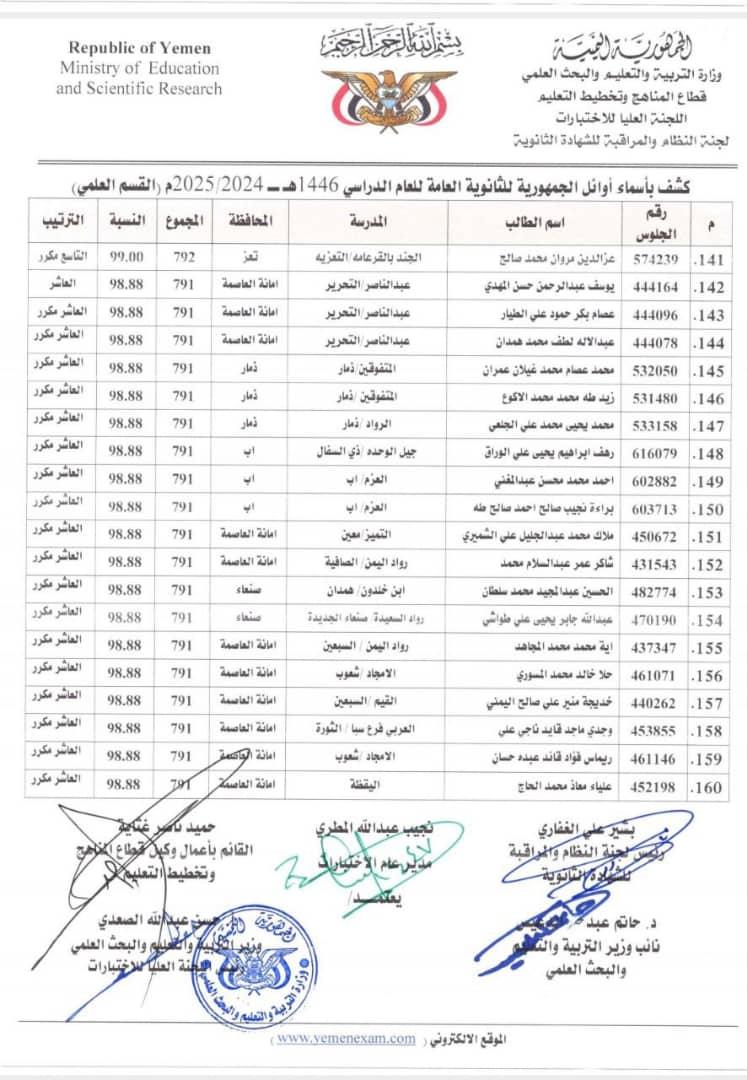 Republic of Yemen
Ministry of Education
and Scientific Research
بسم الله الرحمن الرحيم
الجمهورية اليمنية
وزارة التربية والتعليم والبحث العلمي
قطاع المناهج وتخطيط التعليم
اللجنة العليا للاختبارات
لجنة النظام والمراقبة للشهادة الثانوية
كشف بأسماء أوائل الجمهورية للثانوية العامة للعام الدراسي 1446هـ ــ 2025/2024م (القسم العلمي)
م رقم الجلوس اسم الطالب المدرسة المحافظة المجموع النسبة الترتيب
141. 574239 عزالدين مروان محمد صالح الجند بالقرعامه/التعزيه تعز 792 99.00 التاسع مكرر
142. 444164 يوسف عبدالرحمن حسن المهدي عبدالناصر/التحرير امانة العاصمة 791 98.88 العاشر
143. 444096 عصام بكر حمود علي الطيار عبدالناصر/التحرير امانة العاصمة 791 98.88 العاشر مكرر
144. 444078 عبدالاله لطف محمد همدان عبدالناصر/التحرير امانة العاصمة 791 98.88 العاشر مكرر
145. 532050 محمد عصام محمد غيلان عمران المتفوقين/ذمار ذمار 791 98.88 العاشر مكرر
146. 531480 زيد طه محمد محمد الاكوع المتفوقين/ذمار ذمار 791 98.88 العاشر مكرر
147. 533158 محمد يحيى محمد علي الجلعي الرواد/ذمار ذمار 791 98.88 العاشر مكرر
148. 616079 رهف ابراهيم يحيى علي الوراق جيل الوحده/ذي السفال اب 791 98.88 العاشر مكرر
149. 602882 احمد محمد محسن عبدالمغني العزم/ اب اب 791 98.88 العاشر مكرر
150. 603713 براءة نجيب صالح احمد صالح طه العزم/ اب اب 791 98.88 العاشر مكرر
151. 450672 ملاك محمد عبدالجليل علي الشميري التميز/معين امانة العاصمة 791 98.88 العاشر مكرر
152. 431543 شاكر عمر عبدالسلام محمد رواد اليمن/ الصافية امانة العاصمة 791 98.88 العاشر مكرر
153. 482774 الحسين عبدالمجيد محمد سلطان ابن خلدون/ همدان صنعاء 791 98.88 العاشر مكرر
154. 470190 عبدالله جابر يحيى علي طواشي رواد السعيدة/ صنعاء الجديدة صنعاء 791 98.88 العاشر مكرر
155. 437347 اية محمد محمد المجاهد رواد اليمن / السبعين امانة العاصمة 791 98.88 العاشر مكرر
156. 461071 حلا خالد محمد المسوري الامجاد/شعوب امانة العاصمة 791 98.88 العاشر مكرر
157. 440262 خديجة منير علي صالح اليمني القيم/السبعين امانة العاصمة 791 98.88 العاشر مكرر
158. 453855 وجدي ماجد قايد ناجي علي العربي فرع سبا / الثورة امانة العاصمة 791 98.88 العاشر مكرر
159. 461146 ريماس فؤاد قائد عبده حسان الامجاد/شعوب امانة العاصمة 791 98.88 العاشر مكرر
160. 452198 علياء معاذ محمد الحاج اليقظة امانة العاصمة 791 98.88 العاشر مكرر
بشير علي الغفاري
رئيس لجنة النظام والمراقبة
للشهادة الثانوية
نجيب عبدالله المطري
مدير عام الاختبارات
يعتمد/
حميد ناصر غتاية
القائم بأعمال وكيل قطاع المناهج
وتخطيط التعليم
د. حاتم عبد
نائب وزير التربية والتعليم
والبحث العلمي
حسن عبدالله الصعدي
وزير التربية والتعليم والبحث العلمي
رئيس اللجنة العليا للاختبارات
الجمهورية اليمنية
وزارة التربية والتعليم والبحث العلمي
الموقع الالكتروني ( www.yemenexam.com )